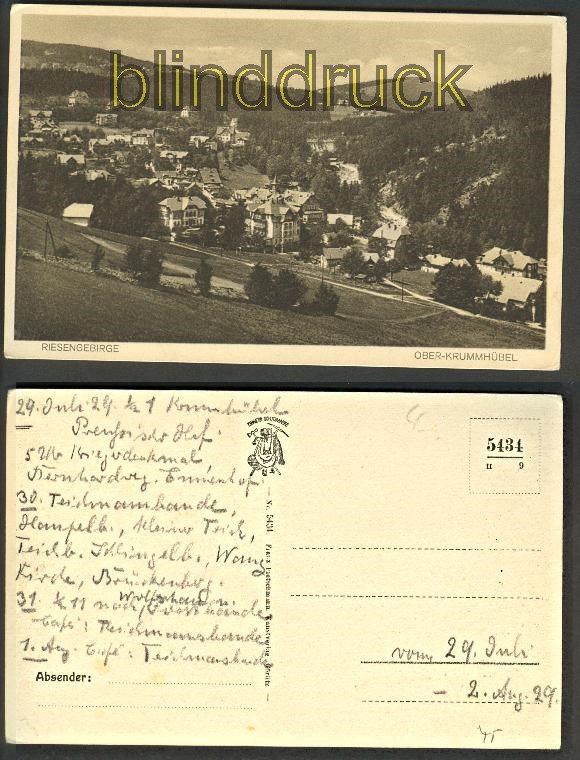 blinddruck
RIESENGEBIRGE
OBER-KRUMMHÜBEL
29. Juli 29. ½ 1 Krummhübel
Preussischer Hof
5 Uhr Kriegerdenkmal
30. Teichmannbaude,
Hampelb., Kleiner Teich,
Teichb. Schlingelb., Wang
Kirche, Brückenberg.
31. ½ 11 nach Wolfshau
Café: Teichmannsbaude
1. Aug. Café: Teichmannsbaude
Absender:
Nr. 5434
5434
II 9
vom 29. Juli
- 2. Aug. 29.